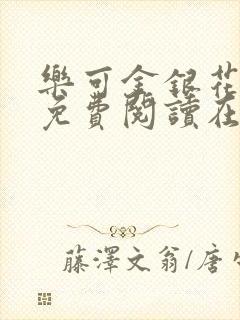 樂可金銀花
免費閱讀在
藤澤文翁/唐